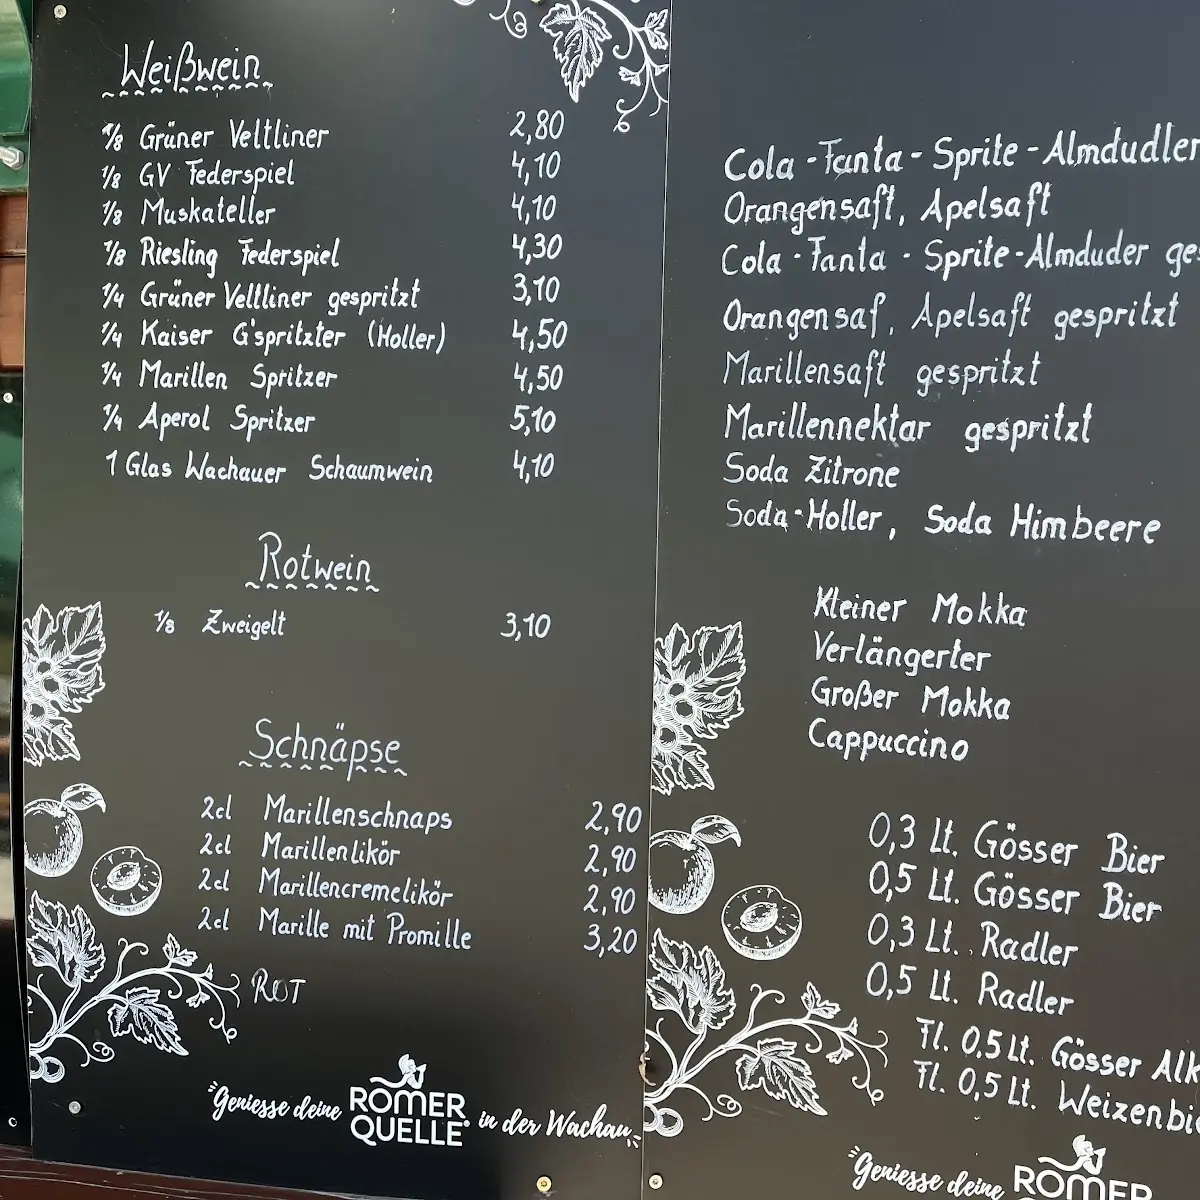 Weißwein
1/8 Grüner Veltliner 2,80
1/8 GV Federspiel 4,10
1/8 Muskateller 4,10
1/8 Riesling Federspiel 4,30
1/4 Grüner Veltliner gespritzt 3,10
1/4 Kaiser G'spritzter (Holler) 4,50
1/4 Marillen Spritzer 4,50
1/4 Aperol Spritzer 5,10
1 Glas Wachauer Schaumwein 4,10
Rotwein
1/8 Zweigelt 3,10
Schnäpse
2cl Marillenschnaps 2,90
2cl Marillenlikör 2,90
2cl Marillencremelikör 2,90
2cl Marille mit Promille 3,20
ROT
"Geniesse deine RÖMER QUELLE® in der Wachau
Cola - Fanta - Sprite - Almdudler
Orangensaft, Apelsaft
Cola - Fanta - Sprite - Almduder ges
Orangensaf, Apelsaft gespritzt
Marillensaft gespritzt
Marillennektar gespritzt
Soda Zitrone
Soda-Holler, Soda Himbeere
Kleiner Mokka
Verlängerter
Großer Mokka
Cappuccino
0,3 Lt. Gösser Bier
0,5 Lt. Gösser Bier
0,3 Lt. Radler
0,5 Lt. Radler
Fl. 0,5 Lt. Gösser Alk
Fl. 0,5 Lt. Weizenbie
"Geniesse deine RÖMER